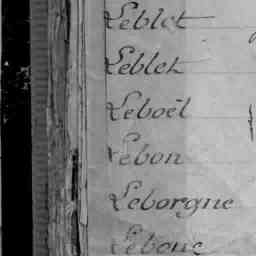 Leblet
Leblet
Leboël
Lebon
Leborgne
Lebouc